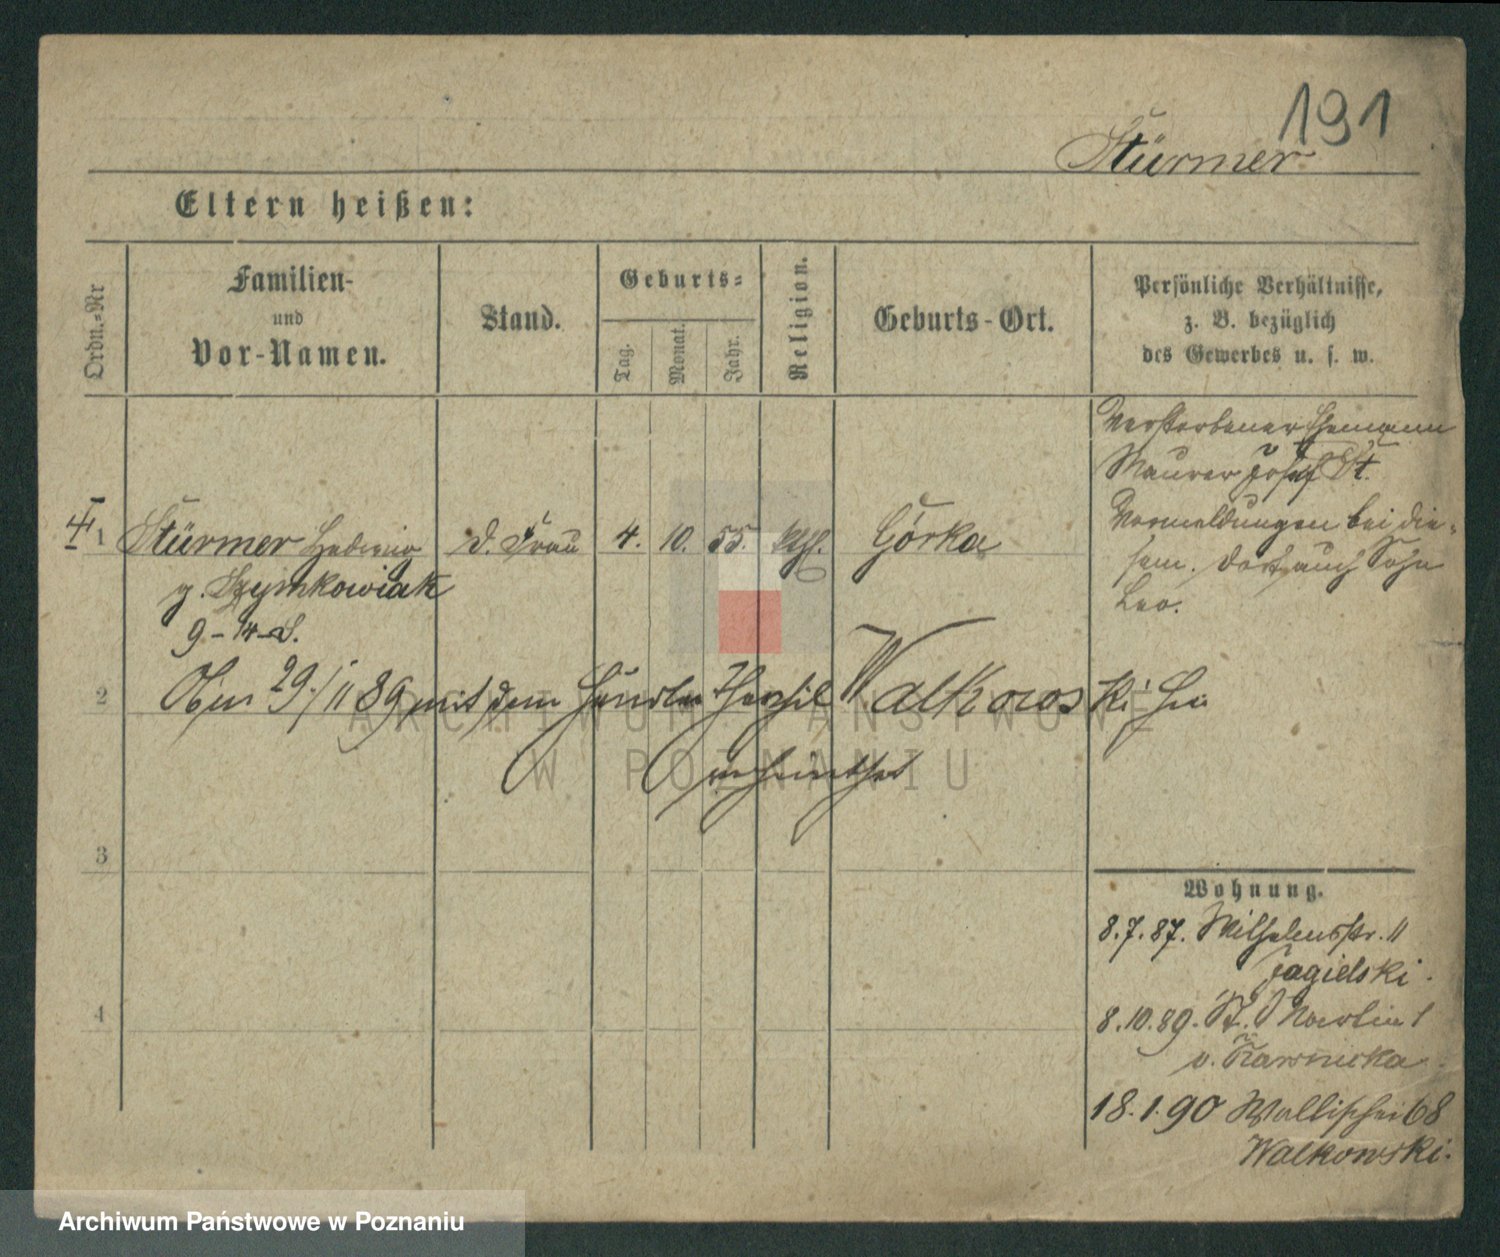 191
Stürmer
Eltern heißen:
Ordn.-Nr
Familien-
und
Vor-Namen.
Stand.
Geburts-
Tag.
Monat.
Jahr.
Religion.
Geburts-Ort.
Persönliche Verhältnisse,
z. B. bezüglich
des Gewerbes u. s. w.
Verstorbener Ehemann
Maurer Josef St.
Vermeldungen bei die-
sem. Dort auch Sohn
Leo.
1 Stürmer Hedwig d. Frau 4. 10. 55. kth. Górka
g. Szymkowiak
9-14-
2 29./11 89 mit dem Händler Walkowski hie
verheirathet
3
4
Wohnung.
8.7.87. Wilhelmsstr. 11
Jagielski.
8.10.89. St. Martin 1
v.
18.1.90 Wallischei 68
Walkowski.
ARCHIWUM PAŃSTWOWE
W POZNANIU
Archiwum Państwowe w Poznaniu